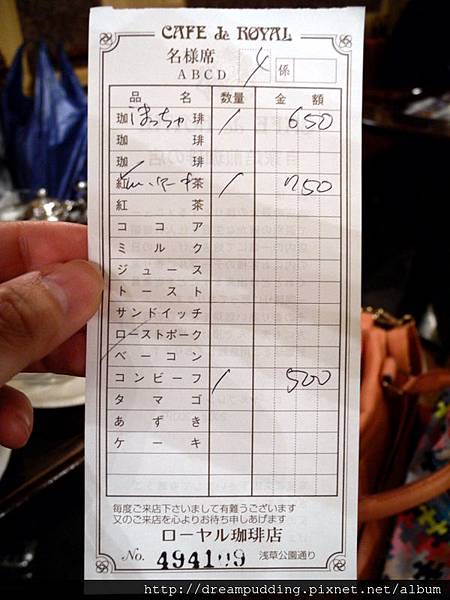 CAFE de ROYAL
名様席
ABCD
係
品 名 数量 金 額
珈 琲 1 650
珈 琲
珈 琲
紅 茶 1 750
紅 茶
ココア
ミルク
ジュース
トースト
サンドイッチ
ローストポーク
ベーコン
コンビーフ 1 500
タマゴ
あずき
ケーキ
毎度ご来店下さいまして有難うございます
又のご来店を心よりお待ち申しあげます
ローヤル珈琲店
No. 浅草公園通り
http://dreampudding.pixnet.net/album